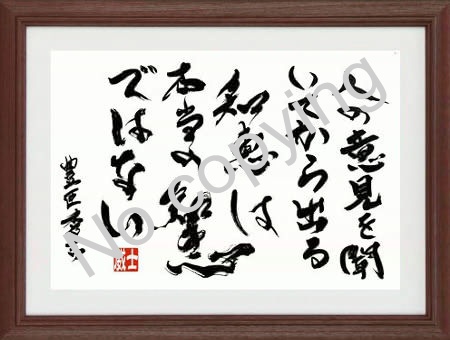 人の意見を聞
いてから出る
知恵は
本当の知恵
ではない
豊臣秀吉
No copying